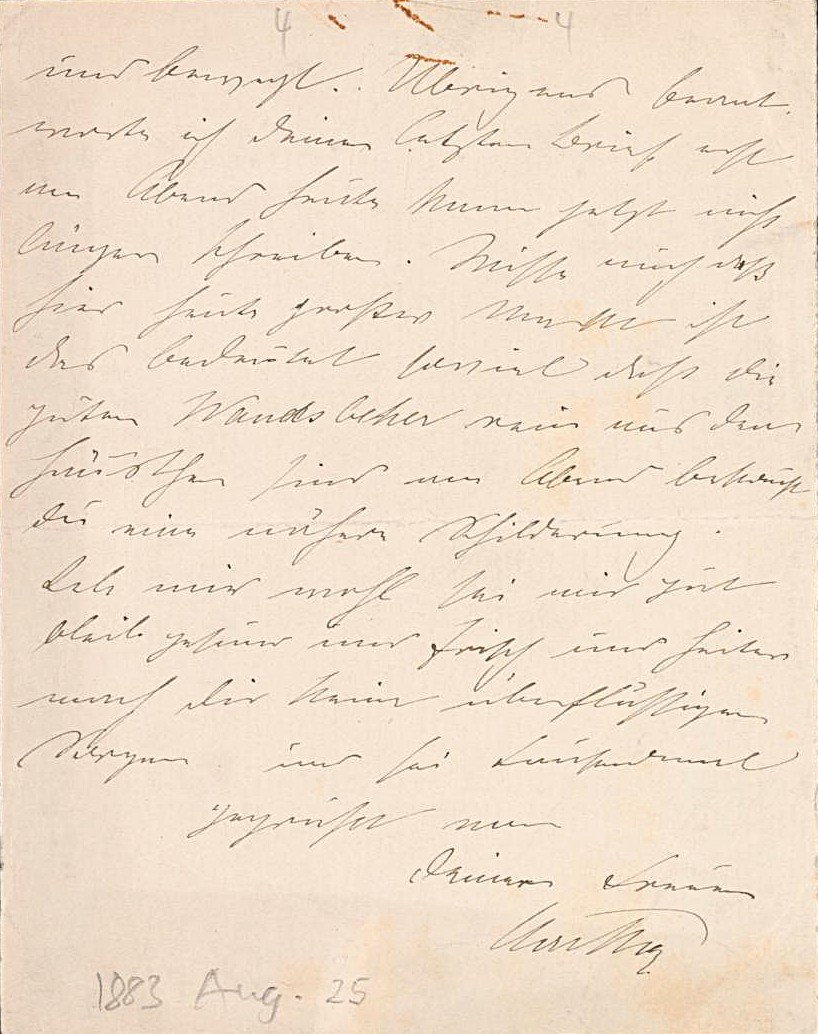 4 4
und bewegt. Übrigens beant-
worte ich Deinen letzten Brief erst
am Abend heute kann jetzt nicht
länger schreiben. Wisse auch daß
hier heute großer Markt ist
das bedeutet soviel daß die
guten Wandsbeker rein aus dem
Häuschen sind am Abend bekommst
Du eine nähere Schilderung.
Leb mir wohl sei mir gut
bleib gesund und frisch und heiter
mach Dir keine überflüssigen
Sorgen und sei tausendmal
gegrüßt von
Deiner treuen
Martha
1883 Aug. 25